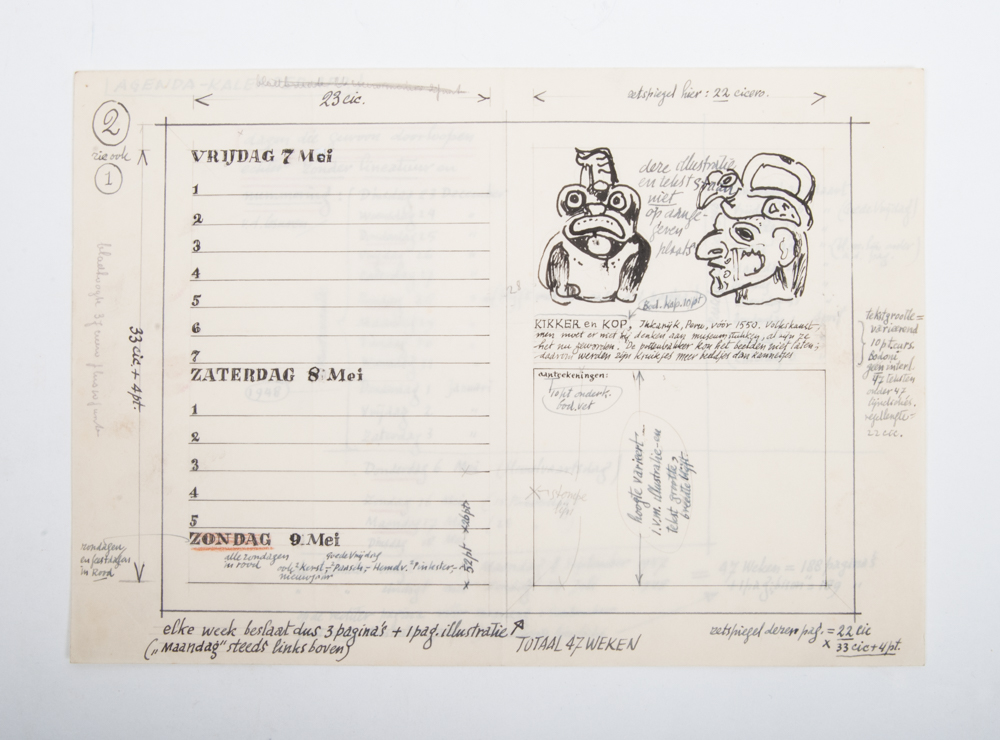 23 cic.
zetspiegel hier: 22 cicero.
2
zie ook
1
33 cic + 4 pt.
VRIJDAG 7 Mei
1
2
3
4
5
6
7
ZATERDAG 8 Mei
1
2
3
4
5
ZONDAG 9 Mei
alle zondagen
in rood
goede vrijdag
ook "Kerst-, "Paasch-, Hemelv. "Pinkster-,
nieuwjaar
zondagen
en feestdagen
in Rood
x 52pt
deze illustratie
en tekst staan
niet
op aange-
geven
plaats
Bod. kap. 10 pt
KIKKER en KOP, Inkarijk, Peru, vóór 1550. Volkskunst-
men moet er niet bij denken aan museumstukken, al zijn ze
het nu geworden. De pottenbakker kon het beelden niet laten;
daarom werden zijn kruikjes meer beeldjes dan kannetjes
tekstgrootte =
varieerend
10 pt curs.
bodoni
geen interl.
47 teksten
onder 47
regellengte =
22 cic.
aantekeningen:
10 pt onderk.
bod. vet
hoogte varieert
i.v.m. illustratie- en
tekst grootte,
breedte blijft
elke week beslaat dus 3 pagina's + 1 pag. illustratie
("Maandag" steeds linksboven)
TOTAAL 47 WEKEN
zetspiegel dezer pag. = 22 cic
x 33 cic + 4 pt.